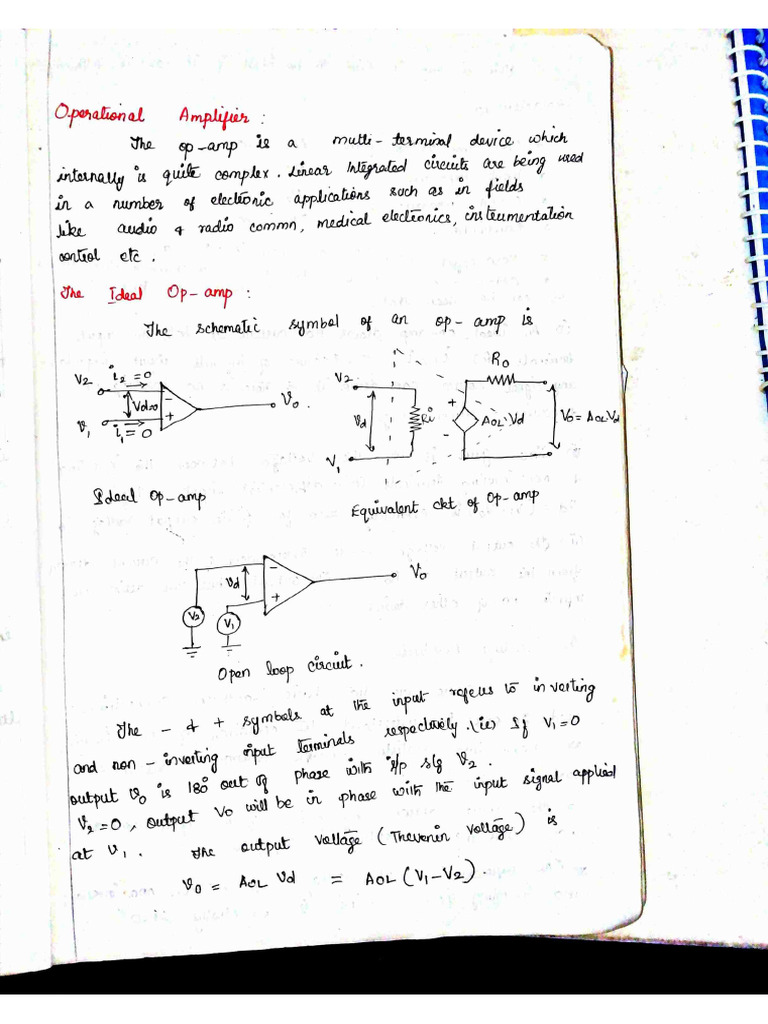 Operational Amplifier :
The op-amp is a multi-terminal device which
internally is quite complex. Linear Integrated circuits are being used
in a number of electronic applications such as in fields
like audio & radio commn, medical electronics, instrumentation
control etc.
The Ideal Op-amp :
The schematic symbol of an op-amp is
V2 i2 = 0
Vd=0
- +
V1 i1 = 0
Vo.
Ideal Op-amp
V2
Vd
V1
Ri
Ro
+
AOL.Vd
Vo = AOLVd
Equivalent ckt of Op-amp
Vd
- +
Vo
V2
V1
Open loop circuit.
The - & + symbols at the input refers to inverting
and non-inverting input terminals respectively. (ie) If V1=0
output Vo is 180° out of phase with i/p sig V2.
V2=0, output Vo will be in phase with the input signal applied
at V1. The output voltage (Thevenin voltage) is
Vo = AOL Vd = AOL (V1-V2).